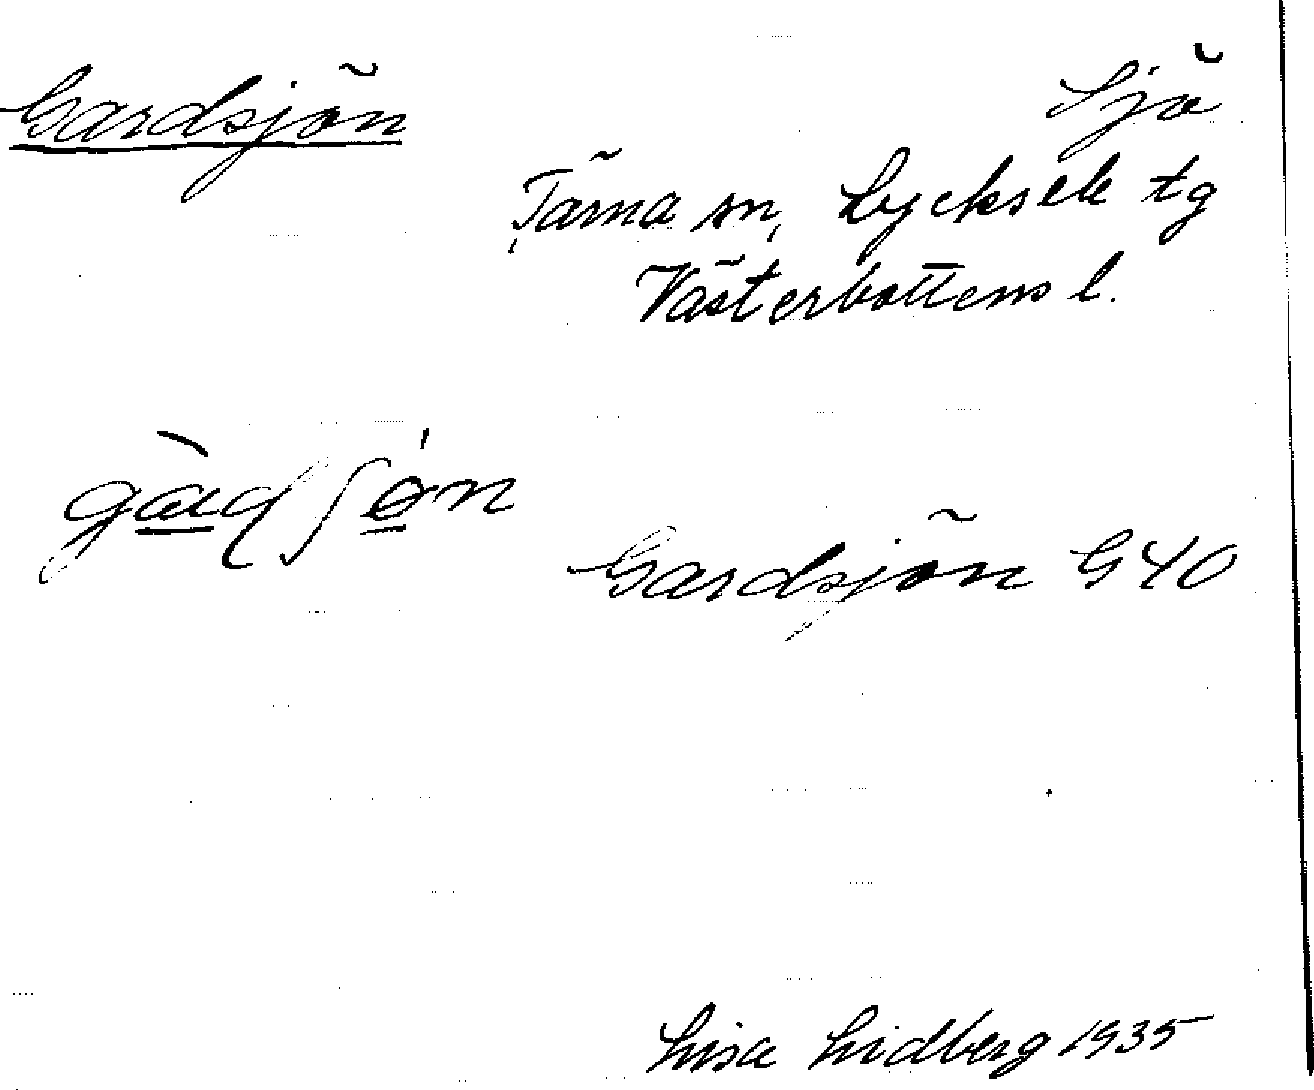 Gardsjön
Sjö
Tärna sn, Lycksele tg
Västerbottens l.
Gardsjön G40
Lisa Lidberg 1935